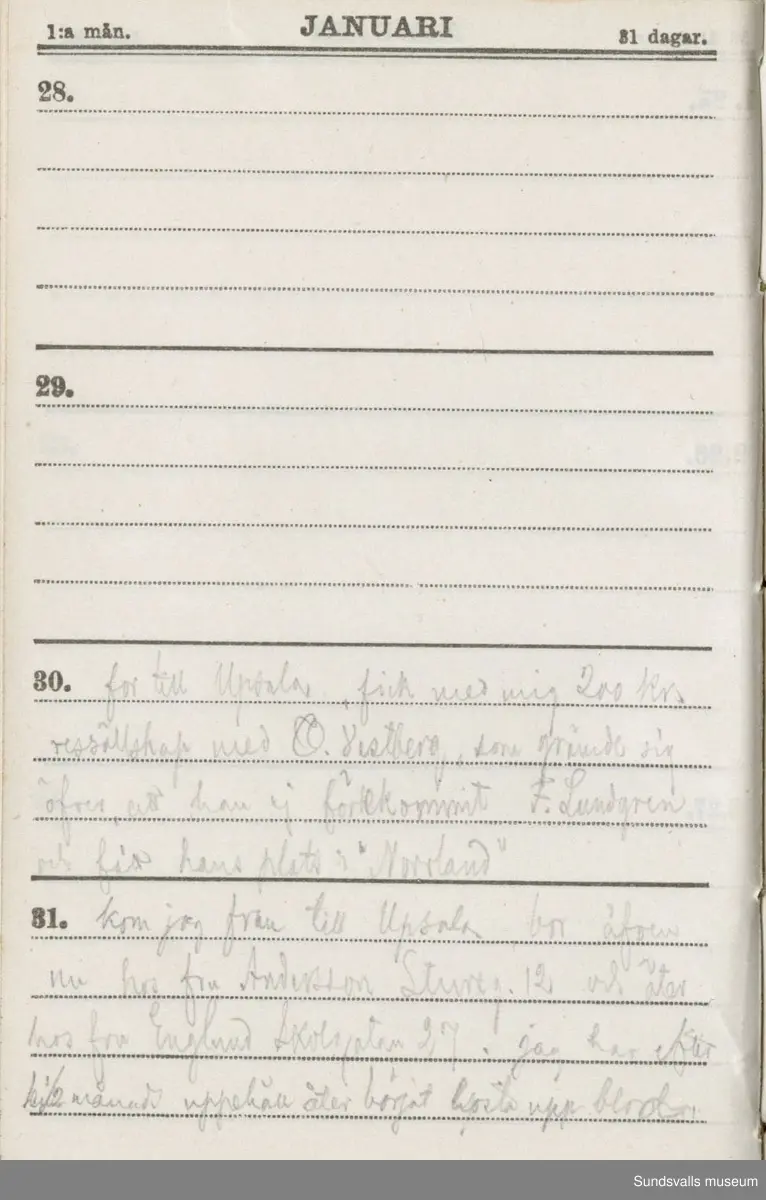 1:a mån. JANUARI 31 dagar.
28.
29.
30. for till Upsala, fick med mig 200 kr.
ressällskap med O. Vestberg, som grämde sig
öfver att han ej förekommit F. Lundgren
och fått hans plats i "Norrland"
31. kom jag fram till Upsala, bor äfven
nu hos fru Andersson Stureg. 12 och äter
hos fru Englund Skolgatan 27. jag har efter
1/2 månads uppehåll åter börjat hosta upp blod.
Sundsvalls museum